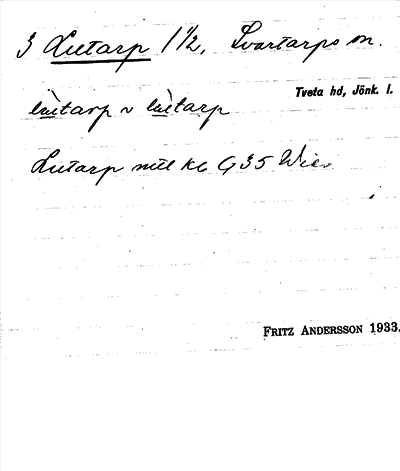 3 Lutarp 1 1/2, Svartarps sn.
Tveta hd, Jönk. l.
lùtarp ~ lùtarp
Lutarp mtl kb G 35 Wies
FRITZ ANDERSSON 1933.